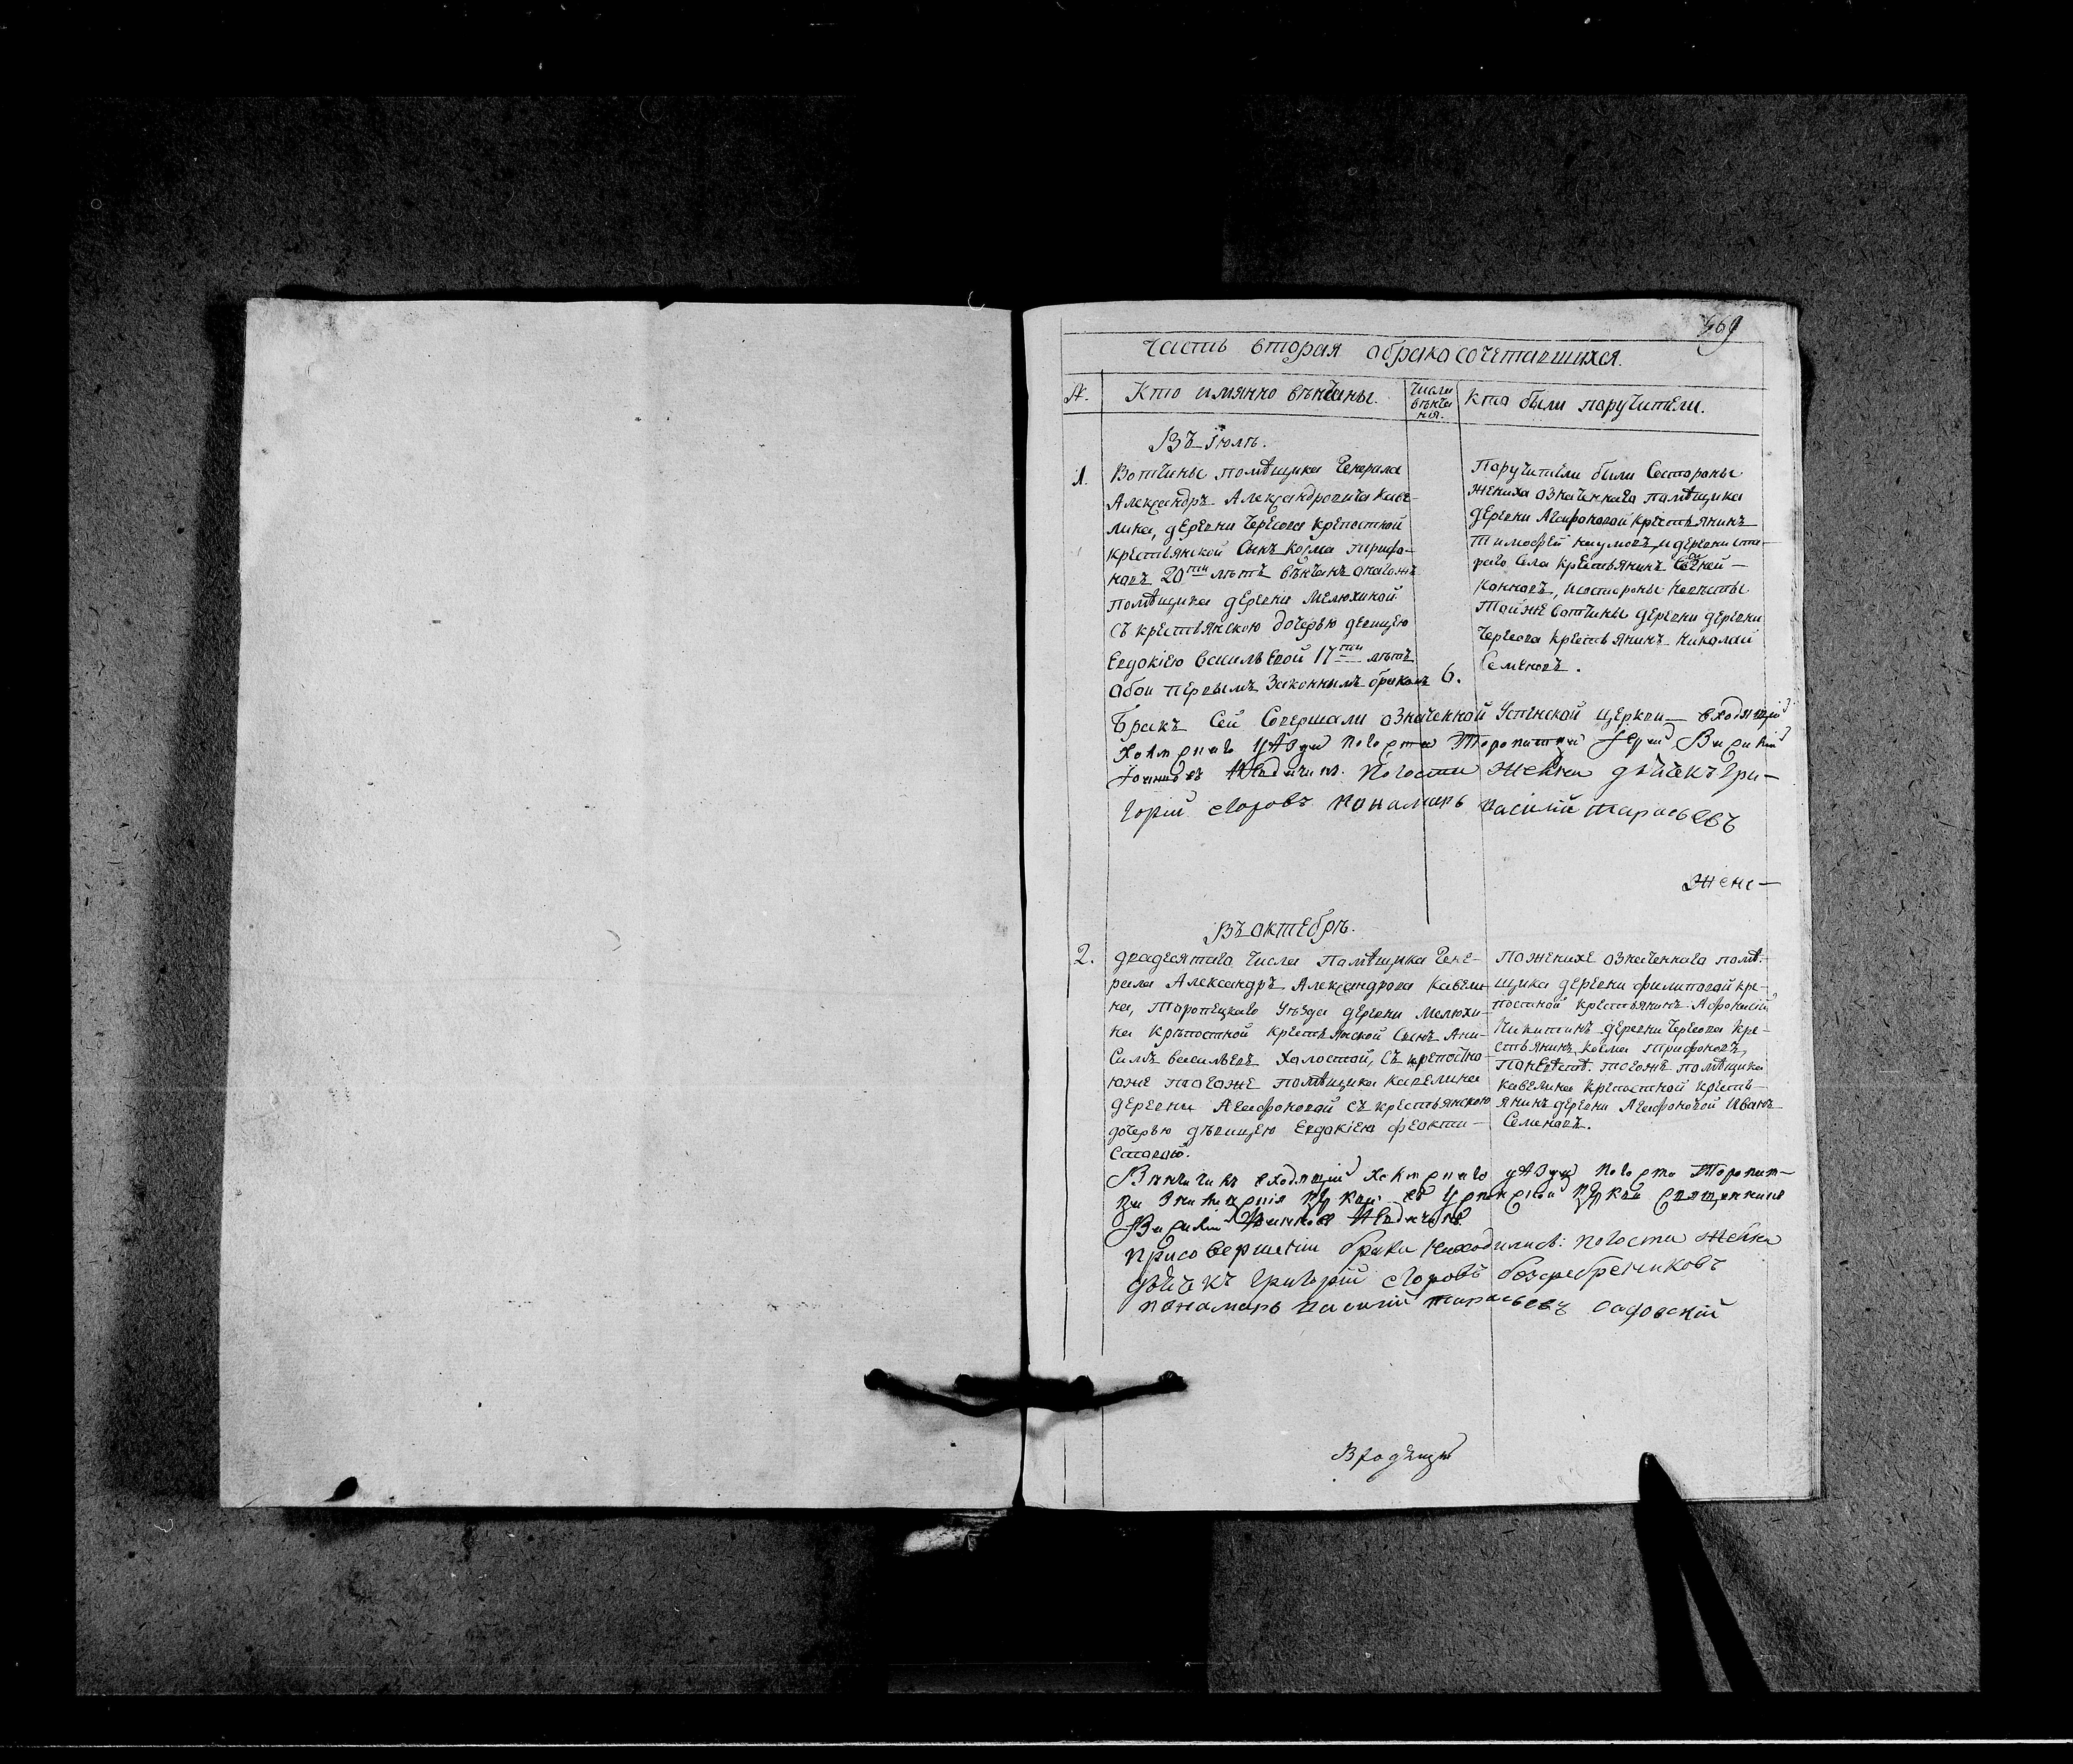 469
Часть вторая обракосочетавшихся.
№. Кто имянно вѣнчаны. Числа вѣнча ния. Кто были поручители.
Въ Июлѣ.
1. Вотчины помѣщика Генерала
Александръ Александровича Каве-
лина, деревни Чересова крепостной
крестьянской Сынъ Козма Трифо-
новъ 20ти лѣтъ вѣнчанъ онагожъ
помѣщика деревни Мелюхиной
съ крестьянскою дочерью девицею
Евдокіею Васильевой 17ти лѣтъ
обои первымъ Законнымъ бракомъ 6.
Поручители были Состороны
жениха означеннаго помѣщика
деревни Агафоновой крестьянинъ
Тимофей Наумовъ, и деревни Ста-
раго Села крестьянинъ
Кононовъ, исостороны Невѣсты
Тойже вотчины деревни деревни
Чересова крестьянинъ Николай
Семеновъ.
Бракъ Сей Совершали означенной Успенской церкви — входящій
Холмскаго уѣзда погоста Торопатцы Іерей Василій
Іоанновъ погоста Жешна дьячекъ Гри-
горій егоровъ понамарь василій тарасьевъ
Жене-
Въ октебрѣ.
2. двадесятаго Числа Помѣщика Гене-
рала Александръ Александрова Кавели-
на, Торопецкаго Уѣзда деревни Мелюхи-
на Крѣпостной крестьянской Сынъ Ани-
Симъ Васильевъ Холостой, съ крепостно-
юже тогоже помѣщика Кавелина
деревни Агафоновой съ крестьянскою
дочерью дѣвицею Евдокіею Феокти-
стовой.
Поженихе означеннаго помѣ-
щика деревни Филиповой кре-
постной крестьянинъ Афонасій
Никитинъ деревни Чересова кре-
стьянинъ Козма Трифоновъ,
Поневѣсте. тогожъ помѣщика
Кавелина крепостной кресть-
янинъ деревни Агафоновой Иванъ
Семеновъ.
Вѣнчалъ входящій Холмскаго уѣзда погоста Торопат-
цы церкви въ Успенской церкви Священникъ
Василій Іоанновъ
присовершеніи брака находились: погоста Жешна
дьячекъ григорій егоровъ безсребрениковъ
понамарь василій тарасьевъ садовскій